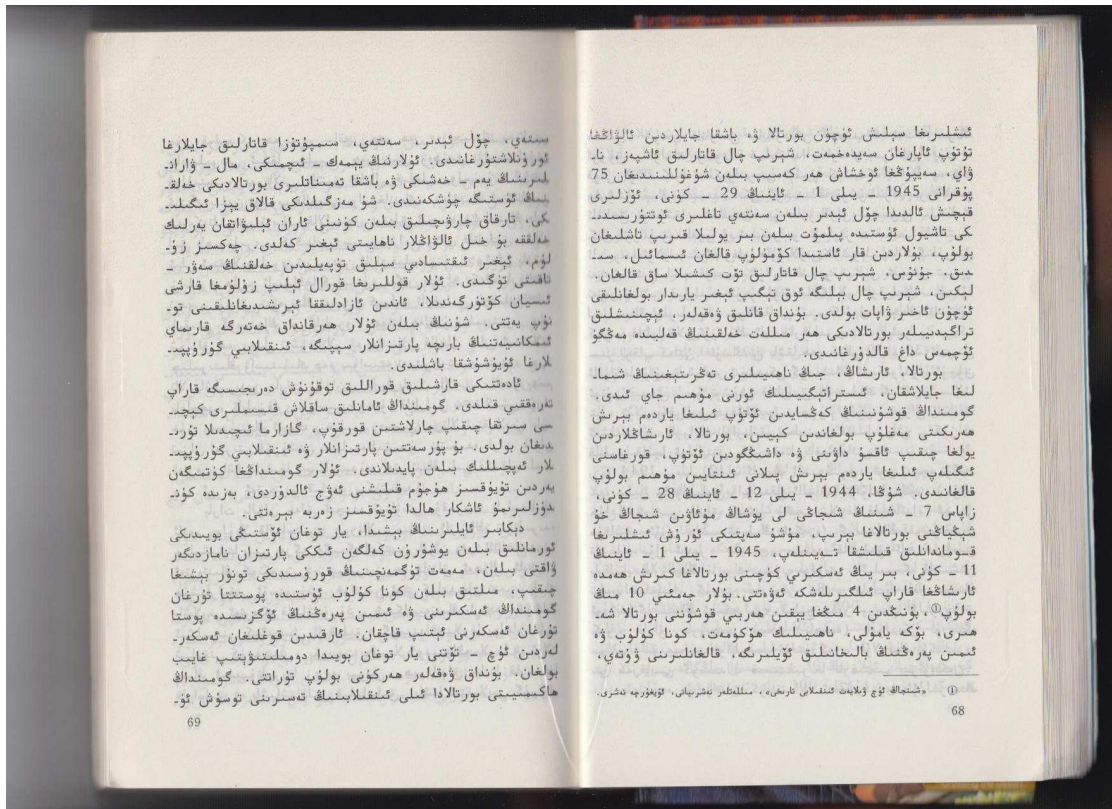 ئىشلىرىغا سېلىش ئۈچۈن بورتالا ۋە باشقا جايلاردىن ئالۋاڭغا
تۇتۇپ ئاپارغان سەيدەخمەت، شېرىپ چال قاتارلىق ئاشپەز، نا-
ۋاي، سەيپۇڭغا ئوخشاش ھەر كەسىپ بىلەن شۇغۇللىنىدىغان 75
پۇقرانى 1945 - يىلى 1 - ئاينىڭ 29 - كۈنى، ئۆزلىرى
قېچىش ئالدىدا چۆل ئېدىر بىلەن سەنتەي تاغلىرى ئوتتۇرىسىدى-
كى تاشيول ئۈستىدە پىلمۇت بىلەن بىر يولىلا قىرىپ تاشلىغان
بولۇپ، بۇلاردىن قار ئاستىدا كۆمۈلۈپ قالغان ئىسمائىل، سە-
دىق، جۇنۇس، شېرىپ چال قاتارلىق تۆت كىشىلا ساق قالغان.
لېكىن، شېرىپ چال بېلىگە ئوق تېگىپ ئېغىر يارىدار بولغانلىقى
ئۈچۈن ئاخىر ۋاپات بولدى. بۇنداق قانلىق ۋەقەلەر، ئېچىنىشلىق
تراگېدىيىلەر بورتالادىكى ھەر مىللەت خەلقىنىڭ قەلبىدە مەڭگۈ
ئۆچمەس داغ قالدۇرغانىدى.
بورتالا، ئارشاڭ، جىڭ ناھىيىلىرى تەڭرىتېغىنىڭ شىما-
لىغا جايلاشقان، ئىستراتېگىيىلىك ئورنى مۇھىم جاي ئىدى.
گومىنداڭ قوشۇنىنىڭ كەڭسايدىن ئۆتۈپ ئىلىغا ياردەم بېرىش
ھەرىكىتى مەغلۇپ بولغاندىن كېيىن، بورتالا، ئارشاڭلاردىن
يولغا چىقىپ ئاقسۇ داۋىنى ۋە داشىڭگودىن ئۆتۈپ، قورغاسنى
ئىگىلەپ ئىلىغا ياردەم بېرىش پىلانى ئىنتايىن مۇھىم بولۇپ
قالغانىدى. شۇڭا، 1944 - يىلى 12 - ئاينىڭ 28 - كۈنى،
زاپاس 7 - شىنىڭ شىجاڭى لى يۈشاڭ مۇئاۋىن شىجاڭ خۇ
شېڭياڭنى بورتالاغا بېرىپ، مۇشۇ سەپتىكى ئۇرۇش ئىشلىرىغا
قىسماندانلىق قىلىشقا تەيىنلەپ، 1945 - يىلى 1 - ئاينىڭ
11 - كۈنى، بىر يىڭ ئەسكىرىي كۈچىنى بورتالاغا كىرىش ھەمدە
ئارشاڭغا قاراپ ئىلگىرىلەشكە ئەۋەتتى. بۇلار جەمئىي 10 مىڭ
بولۇپ①، بۇنىڭدىن 4 مىڭغا يېقىن ھەربىي قوشۇننى بورتالا شە-
ھىرى، بۆكە يامۇلى، ناھىيىلىك ھۆكۈمەت، كونا كۇلۇب ۋە
ئىمىن پەرەڭنىڭ بالىخانىلىق ئۆيلىرىگە، قالغانلىرىنى ۋۇتەي،
① «شىنجاڭ ئۈچ ۋىلايەت ئىنقىلابى تارىخى»، مىللەتلەر نەشرىياتى، ئۇيغۇرچە نەشرى.
68
سىتەي، چۆل ئېدىر، سەنتەي، سىمپۇتۇزا قاتارلىق جايلارغا
ئورۇنلاشتۇرغانىدى. ئۇلارنىڭ يېمەك - ئىچمىكى، مال - ۋارانـ
لىرىنىڭ يەم - خەشىكى ۋە باشقا تەمىناتلىرى بورتالادىكى خەلق-
نىڭ ئۈستىگە چۈشكەنىدى. شۇ مەزگىلدىكى قالاق يېزا ئىگىلى-
كى، تارقاق چارۋىچىلىق بىلەن كۈنىنى ئاران ئېلىۋاتقان يەرلىك
خەلققە بۇ خىل ئالۋاڭلار ناھايىتى ئېغىر كەلدى. چەكسىز زۇ-
لۇم، ئېغىر ئىقتىسادىي سېلىق تۈپەيلىدىن خەلقنىڭ سەۋر -
تاقىتى تۈگىدى. ئۇلار قوللىرىغا قورال ئېلىپ زۇلۇمغا قارشى
ئىسيان كۆتۈرگەندىلا، ئاندىن ئازادلىققا ئېرىشىدىغانلىقىنى تو-
نۇپ يەتتى. شۇنىڭ بىلەن ئۇلار ھەرقانداق خەتەرگە قارىماي
ئىمكانىيەتنىڭ بارىچە پارتىزانلار سېپىگە، ئىنقىلابىي گۇرۇپپى-
لارغا ئۇيۇشۇشقا باشلىدى.
ئادەتتىكى قارشىلىق قوراللىق توقۇنۇش دەرىجىسىگە قاراپ
تەرەققىي قىلدى. گومىنداڭ ئامانلىق ساقلاش قىسىملىرى كېچى-
سى سىرتقا چىقىپ چارلاشتىن قورقۇپ، گازارما ئىچىدىلا تۇرى-
دىغان بولدى. بۇ پۇرسەتتىن پارتىزانلار ۋە ئىنقىلابىي گۇرۇپپى-
لار ئەپچىللىك بىلەن پايدىلاندى. ئۇلار گومىنداڭغا كۈتمىگەن
يەردىن تۇيۇقسىز ھۇجۇم قىلىشنى ئەۋج ئالدۇردى، بەزىدە كۈن-
دۈزلىرىمۇ ئاشكارا ھالدا تۇيۇقسىز زەربە بېرەتتى.
دېكابىر ئايلىرىنىڭ بېشىدا، يار توغان ئۈستىڭى بويىدىكى
ئورمانلىق بىلەن يوشۇرۇن كەلگەن ئىككى پارتىزان نامازدىگەر
ۋاقتى بىلەن، مەمەت تۈگمەنچىنىڭ قورۇسىدىكى تونۇر بېشىغا
چىقىپ، مىلتىق بىلەن كونا كۇلۇب ئۈستىدە پوستتا تۇرغان
گومىنداڭ ئەسكىرىنى ۋە ئىمىن پەرەڭنىڭ ئۆگزىسىدە پوستا
تۇرغان ئەسكەرنى ئېتىپ قاچقان. ئارقىدىن قوغلىغان ئەسكەر-
لەردىن ئۈچ - تۆتنى يار توغان بويىدا دومىلىتىۋېتىپ غايىب
بولغان. بۇنداق ۋەقەلەر ھەركۈنى بولۇپ تۇراتتى. گومىنداڭ
ھاكىمىيىتى بورتالادا ئىلى ئىنقىلابىنىڭ تەسىرىنى توسۇش ئۈ-
69